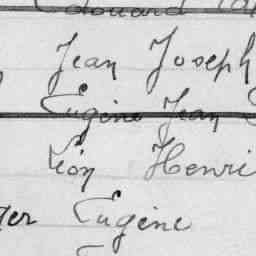 Edouard
Jean Joseph
Eugène Jean
Léon Henri
ger Eugène